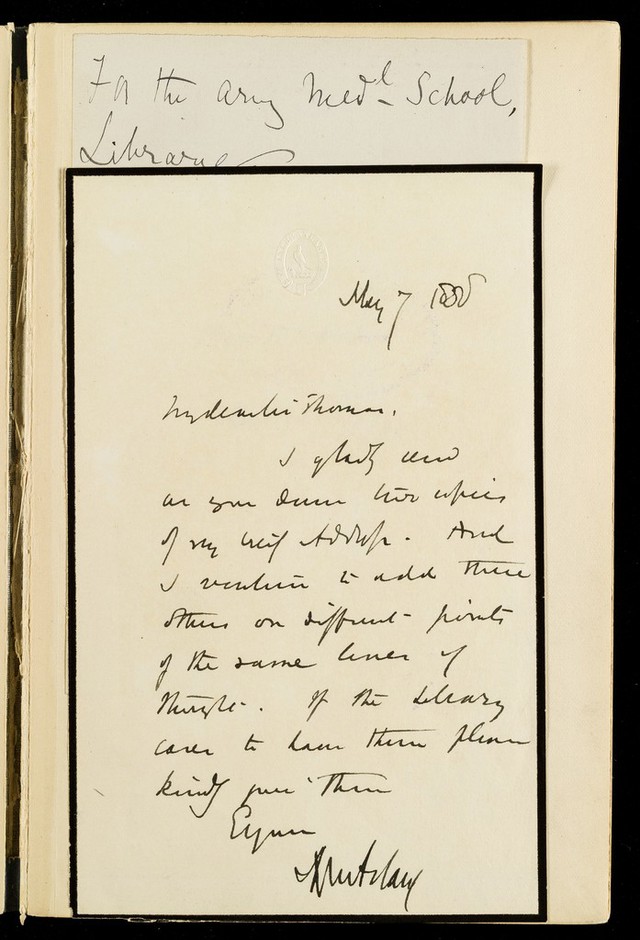 For the Army Medl School,
Library
May 7 1888
My dear Sir Thomas,
I gladly send
as you desire two copies
of my brief Address. And
I venture to add three
others on different points
of the same lines of
thought. If the Library
cares to have them please
kindly give them
Ever yours